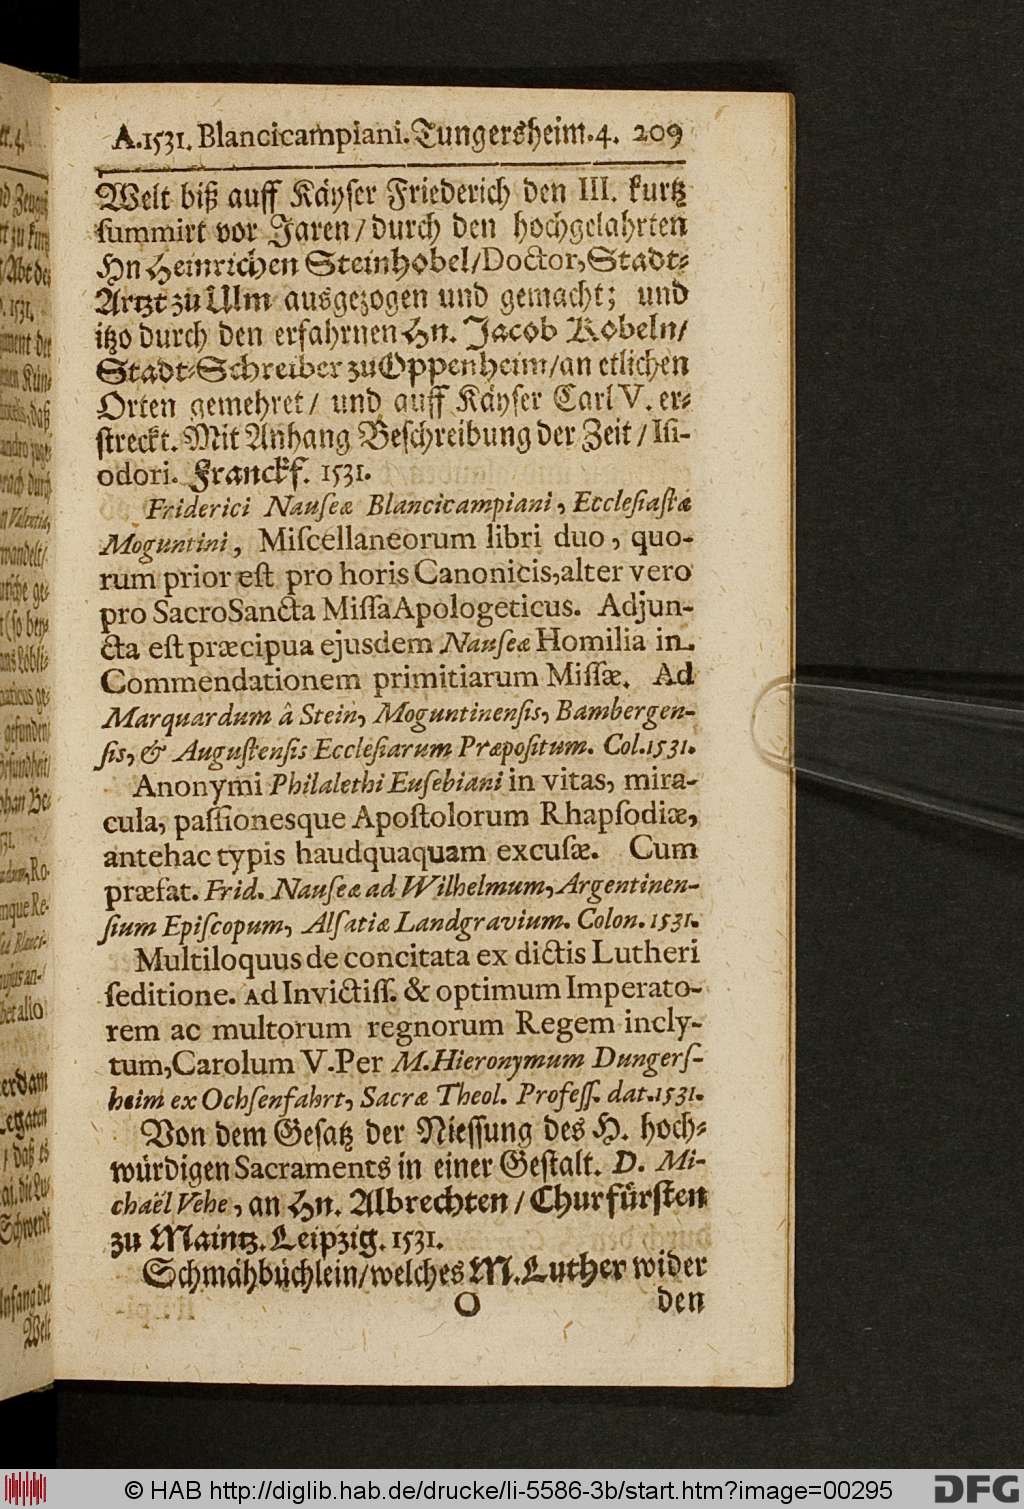 A.1531. Blancicampiani. Tungersheim. 4. 209
Welt biß auff Käyser Friederich den III. kurtz
summirt vor Jaren / durch den hochgelahrten
Hn Heinrichen Steinhobel / Doctor, Stadt-
Artzt zu Ulm ausgezogen und gemacht; und
itzo durch den erfahrnen Hn. Jacob Kobeln /
Stadt-Schreiber zu Oppenheim / an etlichen
Orten gemehret / und auff Käyser Carl V. er-
streckt. Mit Anhang Beschreibung der Zeit / Isi-
odori. Franckf. 1531.
Friderici Nauseæ Blancicampiani, Ecclesiastæ
Moguntini, Miscellaneorum libri duo, quo-
rum prior est pro horis Canonicis, alter vero
pro SacroSancta Missa Apologeticus. Adjun-
cta est præcipua ejusdem Nauseæ Homilia in
Commendationem primitiarum Missæ. Ad
Marquardum â Stein, Moguntinensis, Bambergen-
sis, & Augustensis Ecclesiarum Præpositum. Col. 1531.
Anonymi Philalethi Eusebiani in vitas, mira-
cula, passionesque Apostolorum Rhapsodiæ,
antehac typis haudquaquam excusæ. Cum
præfat. Frid. Nauseæ ad Wilhelmum, Argentinen-
sium Episcopum, Alsatiæ Landgravium. Colon. 1531.
Multiloquus de concitata ex dictis Lutheri
seditione. Ad Invictiss. & optimum Imperato-
rem ac multorum regnorum Regem incly-
tum, Carolum V. Per M. Hieronymum Dungers-
heim ex Ochsenfahrt, Sacræ Theol. Profess. dat. 1531.
Von dem Gesatz der Niessung des H. hoch-
würdigen Sacraments in einer Gestalt. D. Mi-
chaël Vehe, an Hn. Albrechten / Churfürsten
zu Maintz. Leipzig. 1531.
Schmähbüchlein / welches M. Luther wider
O den
© HAB http://diglib.hab.de/drucke/li-5586-3b/start.htm?image=00295
DFG